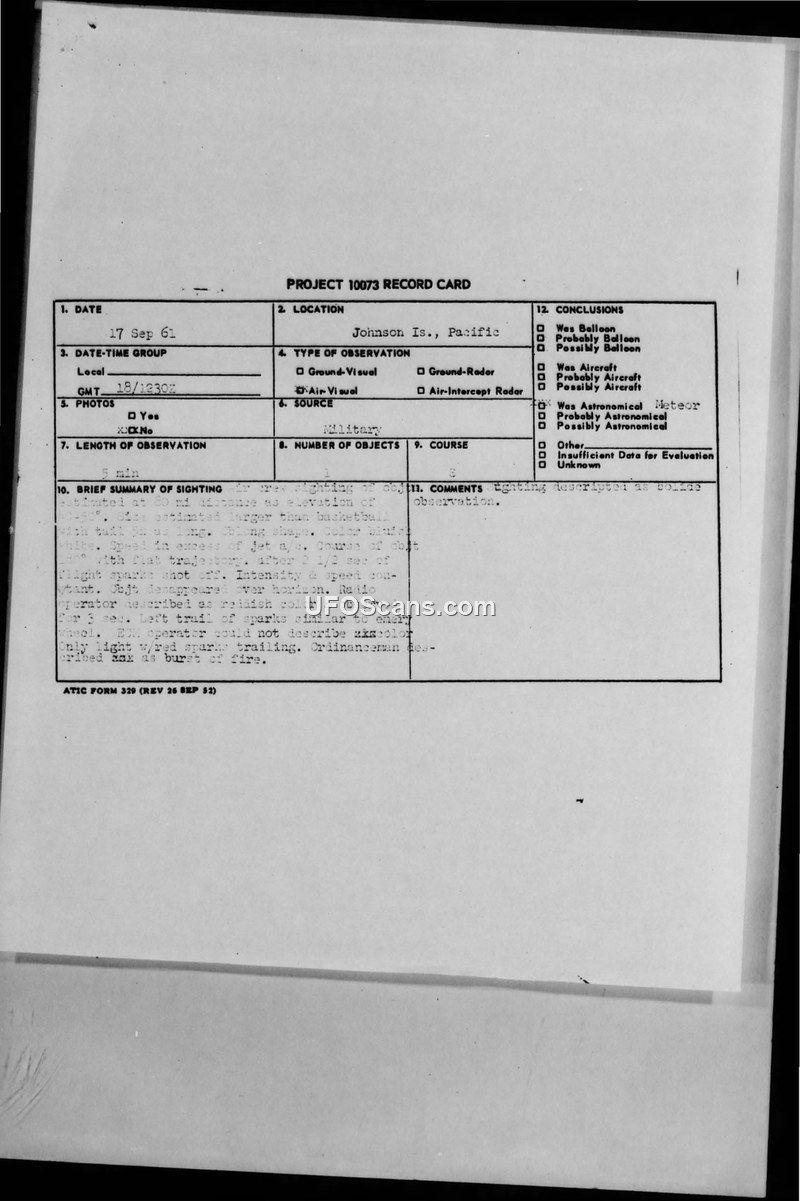 PROJECT 10073 RECORD CARD
1. DATE
17 Sep 61
2. LOCATION
Johnson Is., Pacific
12. CONCLUSIONS
Was Balloon
Probably Balloon
Possibly Balloon
Was Aircraft
Probably Aircraft
Possibly Aircraft
Was Astronomical Meteor
Probably Astronomical
Possibly Astronomical
Other
Insufficient Data for Evaluation
Unknown
3. DATE-TIME GROUP
Local
GMT 18/1230Z
4. TYPE OF OBSERVATION
Ground-Visual Ground-Radar
Air-Visual Air-Intercept Radar
5. PHOTOS
Yes
No
6. SOURCE
Military
7. LENGTH OF OBSERVATION
min
8. NUMBER OF OBJECTS
1
9. COURSE
10. BRIEF SUMMARY OF SIGHTING sighting of obj
estimated at mi distance as elevation of
Size estimated larger than basketball
with tail long. shape. Color
Speed in excess of jet a/c. Course of objt
with flat trajectory. after 2 1/2 sec of
flight sparks shot off. Intensity & speed con-
stant. Objt disappeared over horizon. Radio
operator described as reddish
for 3 sec. Left trail of sparks similar to emery
wheel. operator could not describe color
Only light w/red sparks trailing. Ordinanceman des-
cribed as burst of fire.
11. COMMENTS Sighting described as bolide
observation.
UFOScans.com
ATIC FORM 329 (REV 26 SEP 52)